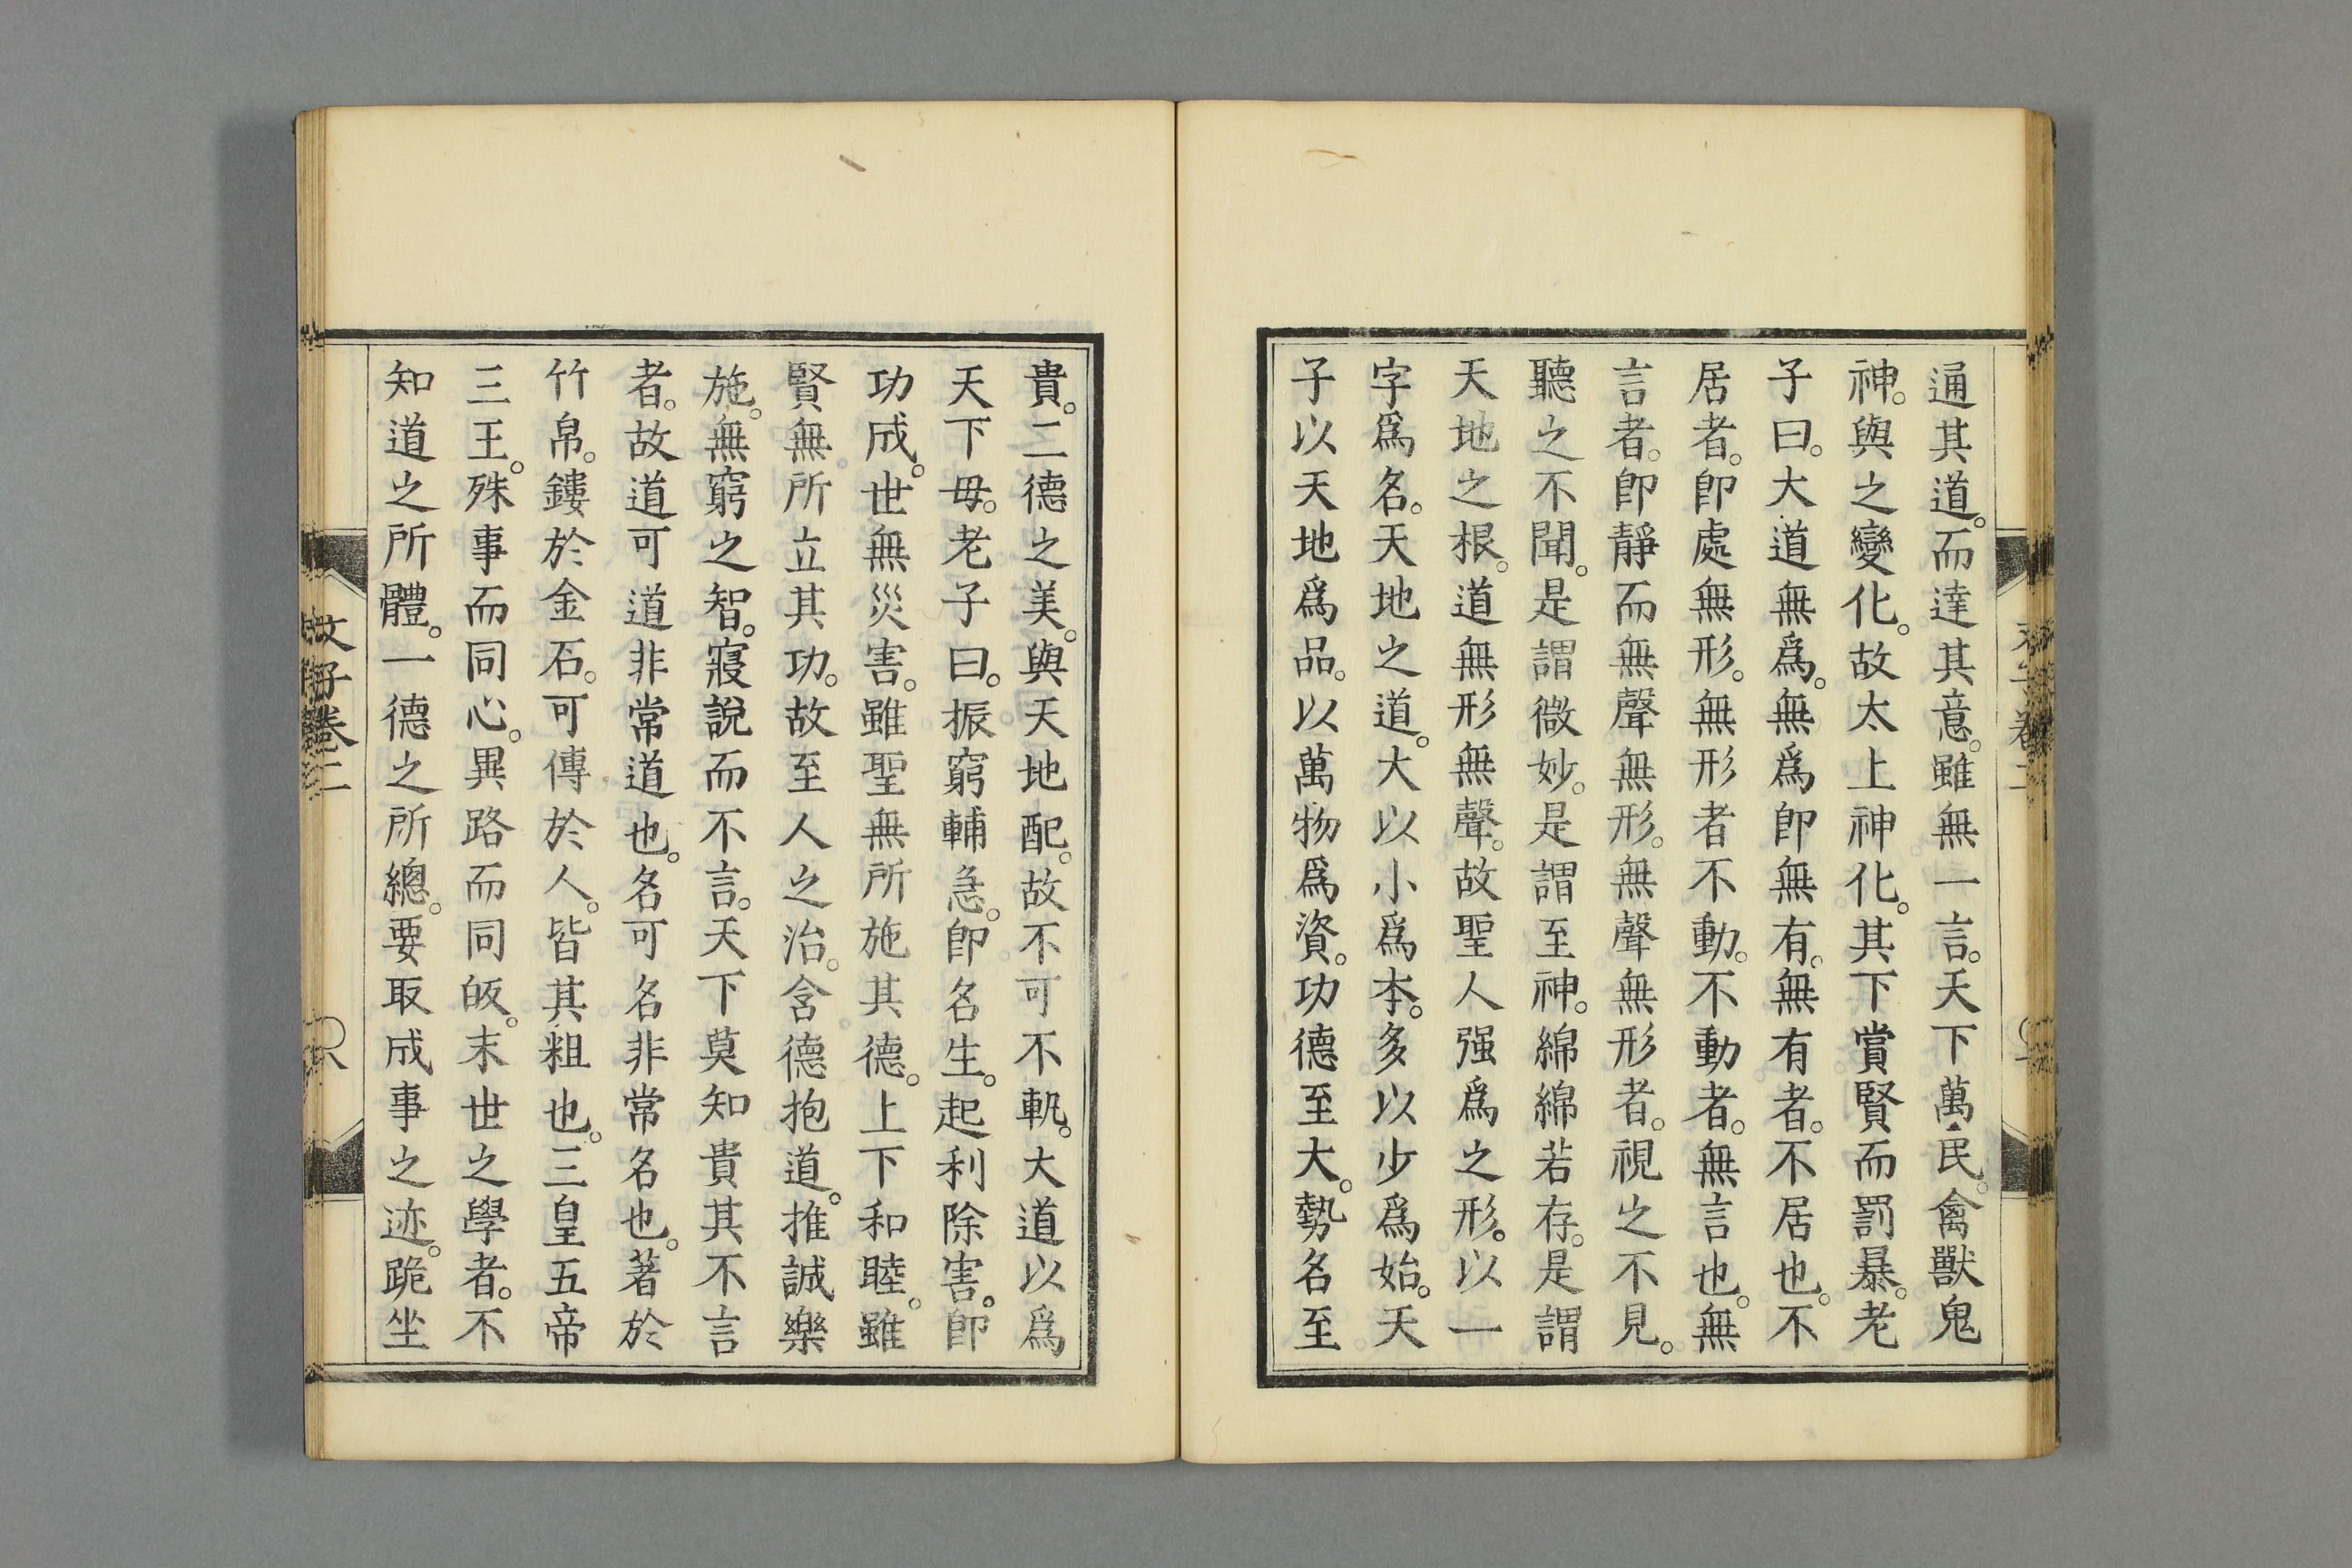 通其道。而達其意。雖無一言。天下萬民。禽獸鬼
神。與之變化。故太上神化。其下賞賢而罰暴。老
子曰。大道無爲。無爲卽無有。無有者。不居也。不
居者。卽處無形。無形者不動。不動者。無言也。無
言者。卽靜而無聲無形。無聲無形者。視之不見。
聽之不聞。是謂微妙。是謂至神。綿綿若存。是謂
天地之根。道無形無聲。故聖人强爲之形。以一
字爲名。天地之道。大以小爲本。多以少爲始。天
子以天地爲品。以萬物爲資。功德至大。勢名至
貴。二德之美。與天地配。故不可不軌。大道以爲
天下母。老子曰。振窮輔急。卽名生。起利除害。卽
功成。世無災害。雖聖無所施其德。上下和睦。雖
賢無所立其功。故至人之治。含德抱道。推誠樂
施。無窮之智。寢說而不言。天下莫知貴其不言
者。故道可道非常道也。名可名非常名也。著於
竹帛。鏤於金石。可傳於人。皆其粗也。三皇五帝
三王。殊事而同心。異路而同皈。末世之學者。不
知道之所體。一德之所總。要取成事之迹。跪坐
文子卷二
八